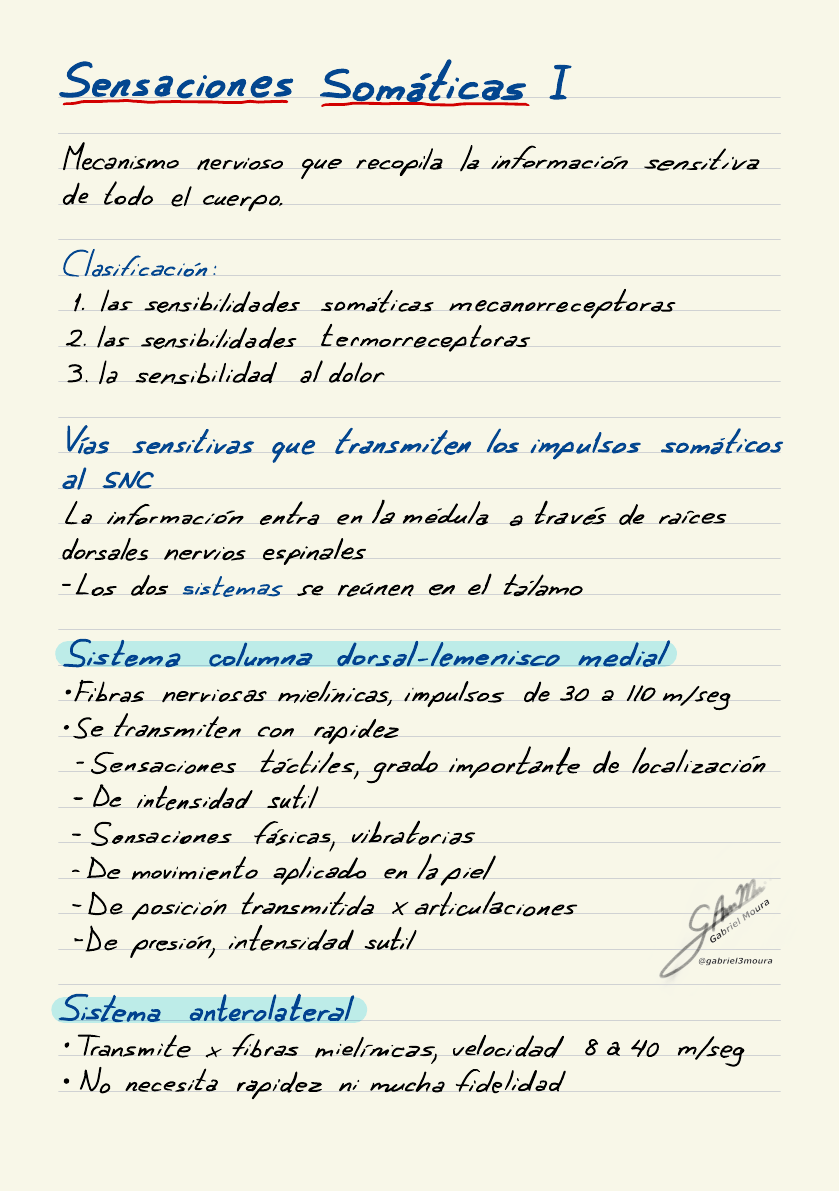 Sensaciones Somáticas I
Mecanismo nervioso que recopila la información sensitiva
de todo el cuerpo.
Clasificación:
1. las sensibilidades somáticas mecanorreceptoras
2. las sensibilidades termorreceptoras
3. la sensibilidad al dolor
Vías sensitivas que transmiten los impulsos somáticos
al SNC
La información entra en la médula a través de raíces
dorsales nervios espinales
-Los dos sistemas se reúnen en el tálamo
Sistema columna dorsal-lemenisco medial
•Fibras nerviosas mielínicas, impulsos de 30 a 110 m/seg
•Se transmiten con rapidez
- Sensaciones táctiles, grado importante de localización
- De intensidad sutil
- Sensaciones fásicas, vibratorias
- De movimiento aplicado en la piel
- De posición transmitida x articulaciones
-De presión, intensidad sutil
Gabriel Moura
@gabriel3moura
Sistema anterolateral
• Transmite x fibras mielínicas, velocidad 8 a 40 m/seg
• No necesita rapidez ni mucha fidelidad